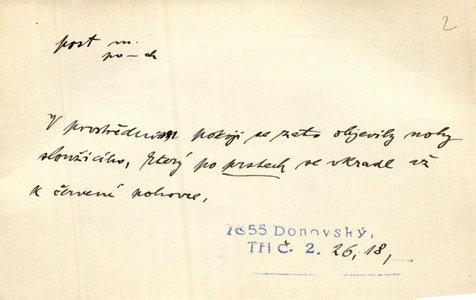 2
post m.
po-ch
V prostředním pokoji se zato objevily nohy
sloužícího, který po prstech se vkradl až
k červené pohovce.
1655 Donovský,
Tři č. 2. 26, 18,